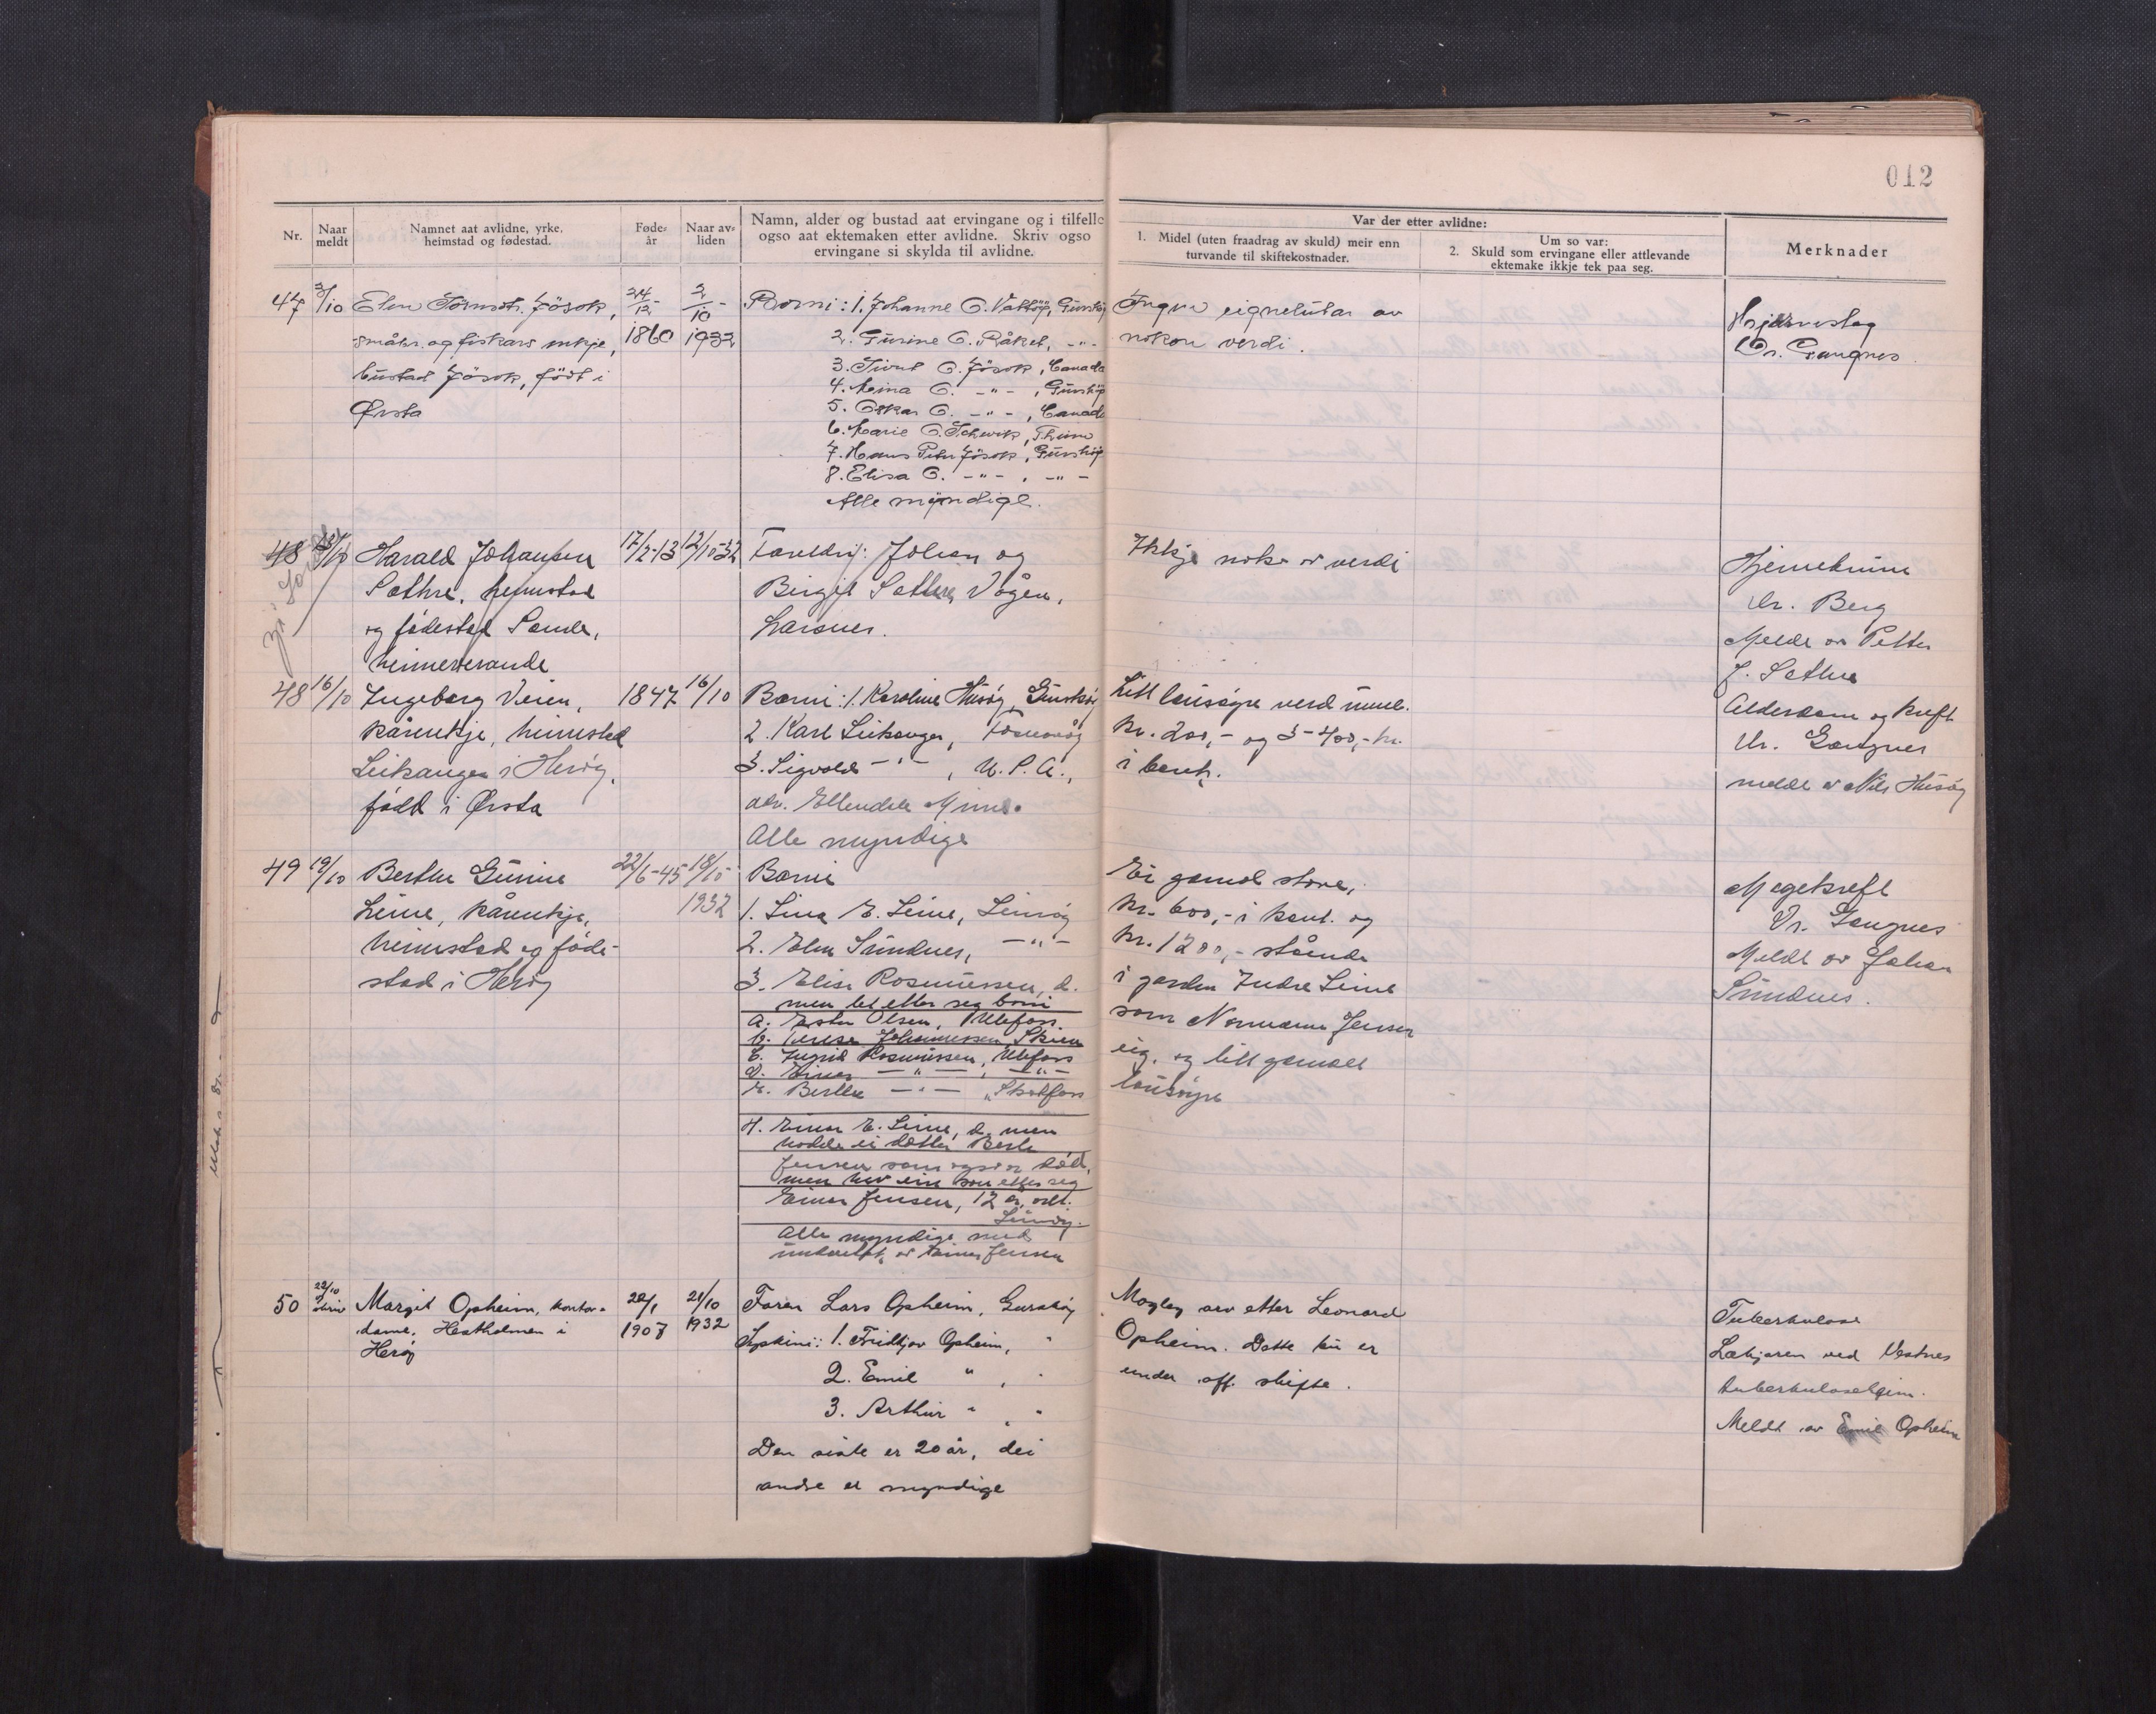 012
Nr.
Naar meldt
Namnet aat avlidne, yrke, heimstad og fødestad.
Føde-år
Naar av-liden
Namn, alder og bustad aat ervingane og i tilfelle
ogso aat ektemaken etter avlidne. Skriv ogso
ervingane si skylda til avlidne.
Var der etter avlidne:
1. Midel (uten fraadrag av skuld) meir enn
turvande til skiftekostnader.
Um so var:
2. Skuld som ervingane eller attlevande
ektemake ikkje tek paa seg.
Merknader
47 3/10 Jøsok,
småbr. og fiskars enkje,
bustad Jøsok, født i
Ørsta
24/12 - 1860
2/10 - 1932
Borni: 1. Johanne O. Gurskøy
2. Gurine O. Råket, -"-
3. O. Jøsok, Canada
4. Meina O. -"-, Gurskøy
5. Oskar O. -"-, Canada
6. Marie O.
7. Hans Peter Jøsok, Gurskøy
8. Elisa O. -"-, -"-
Alle myndige.
Ingen eignelutar av
nokon verdi.
Hjarteslag
Dr. Gangnes
48 13/10 Harald Johansen
Sæthre, heimstad
og fødestad Sande,
heimeverande
17/2-13 12/10-32
Foreldri: Johan og
Birgit Sæthre, Vågen,
Larsnes.
Ikkje noko av verdi
Dr. Berg
Meldt av Petter
J. Sæthre
48 16/10 Ingeborg Veien,
kårenkje, heimstad
Leikanger i Herøy,
født i Ørsta
1847 16/10
Borni: 1. Karoline Husøy, Gurskøy
2. Karl Leikanger, Fosnavåg
3. Sigvald -"-, U.S.A.,
adr. Ellendale Minn.
Alle myndige
Litt lausøyre verd
kr. 200,- og 3-400,- kr.
i bank.
Alderdom og kreft
Dr. Gangnes
meldt av Nils Husøy
49 19/10 Berthe Gurine
Leine, kårenkje,
heimstad og føde-
stad i Herøy
22/6-45 18/10
1932
Borni
1. Lina E. Leine, Leinøy
2. Elen Sundnes, -"-
3. Elise Rasmussen, d.
men let etter seg borni
a. Olsen, Ulefoss.
b. Johannessen, Skien
c. Ingrid Rasmussen, Ulefoss
d. Einar -"-, -"-
e. Berthe -"-, Skotfoss
4. Einar E. Leine, d. men
hadde ei dotter Berte
Jensen som også er død,
men hev ein son etter seg
Einar Jensen, 12 år, adr.
Leinøy.
Alle myndige med
undantak av Einar Jensen
Ei gamal stove,
kr. 600,- i bank og
kr. 1200,- stående
i garden Indre Leine
som Normann Jensen
eig, og litt gamalt
lausøyre
Magekreft
Dr. Gangnes
Meldt av Johan
Sundnes.
50 22/10 skriv Margit Opheim, kontor-
dame. Hestholmen i
Herøy
22/1 1907
21/10 1932
Faren Lars Opheim, Gurskøy
Syskini: 1. Fridtjov Opheim, "
2. Emil ", "
3. Arthur ", "
Den siste er 20 år, dei
andre er myndige
Mogleg arv etter Leonard
Opheim. Dette bu er
under off. skifte.
Tuberkulose
Lækjaren ved Vestnes
tuberkuloseheim.
Meldt av Emil Opheim